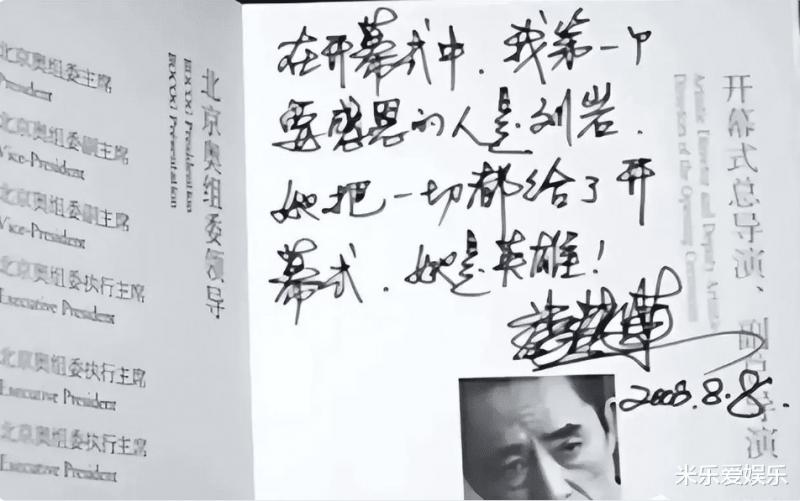 北京奥组委主席
President
北京奥组委副主席
Vice-President
北京奥组委副主席
Vice-President
北京奥组委执行主席
Executive President
北京奥组委执行主席
Executive President
北京奥组委执行主席
Executive President
北京奥组委领导
BOCOG Presentation
在开幕式中，我第一个
要感恩的人是刘岩．
她把一切都给了开
幕式．她是英雄！
2008.8.8.
开幕式总导演、副总导演
Artistic Director and Deputy Artistic
Directors of the Opening Ceremony
米乐爱娱乐